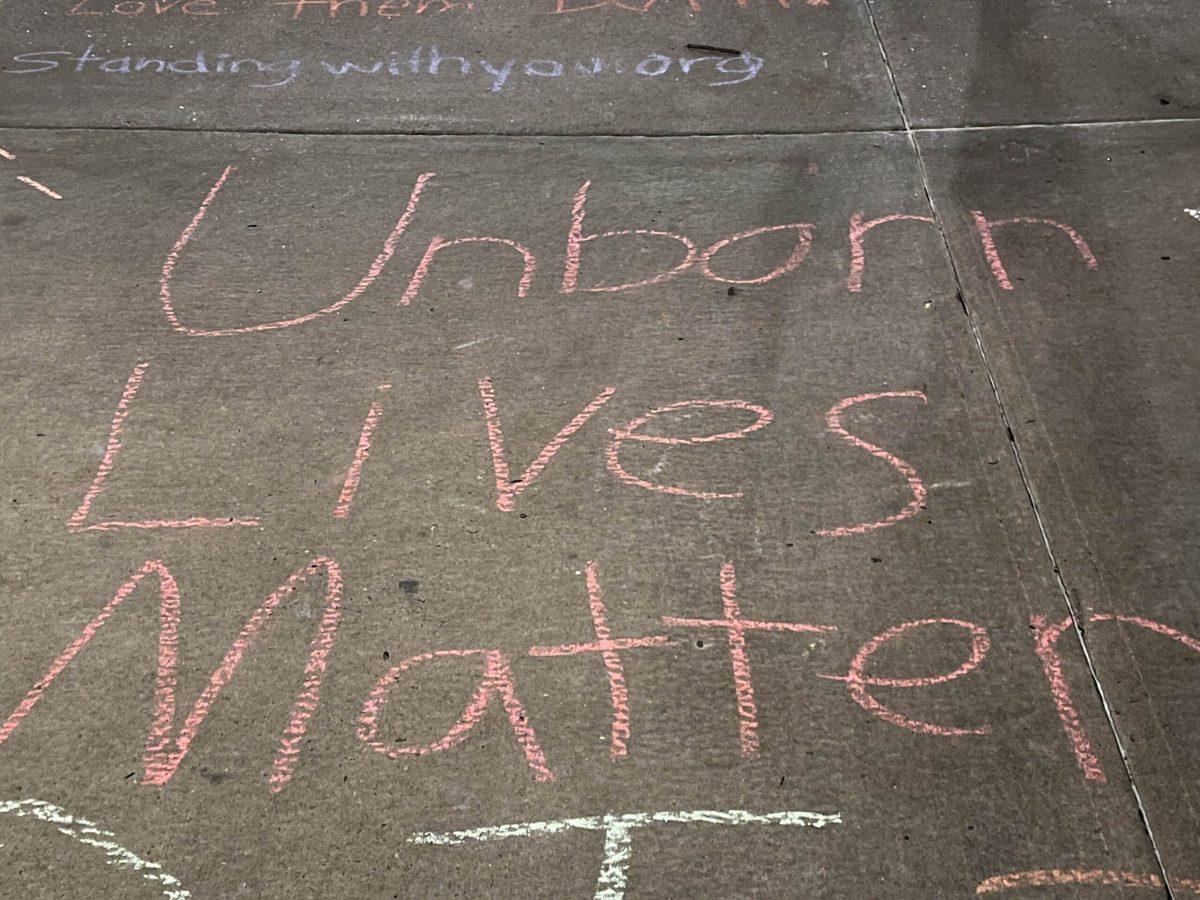 Love Them Both!
Standingwithyou.org
Unborn
Lives
Matter